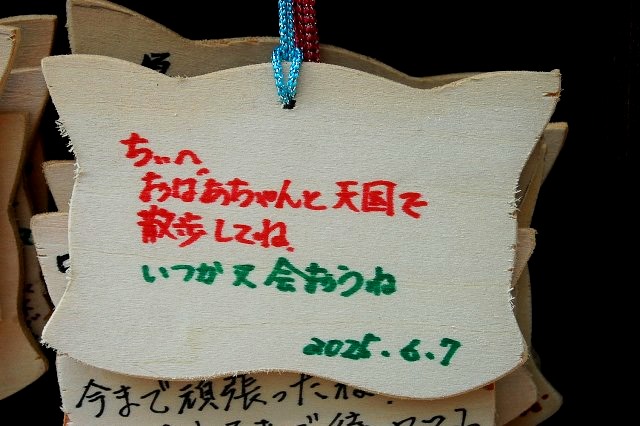 ちぃへ
おばあちゃんと天国で
散歩してね.
いつか又会おうね
2025.6.7
今まで頑張ったね